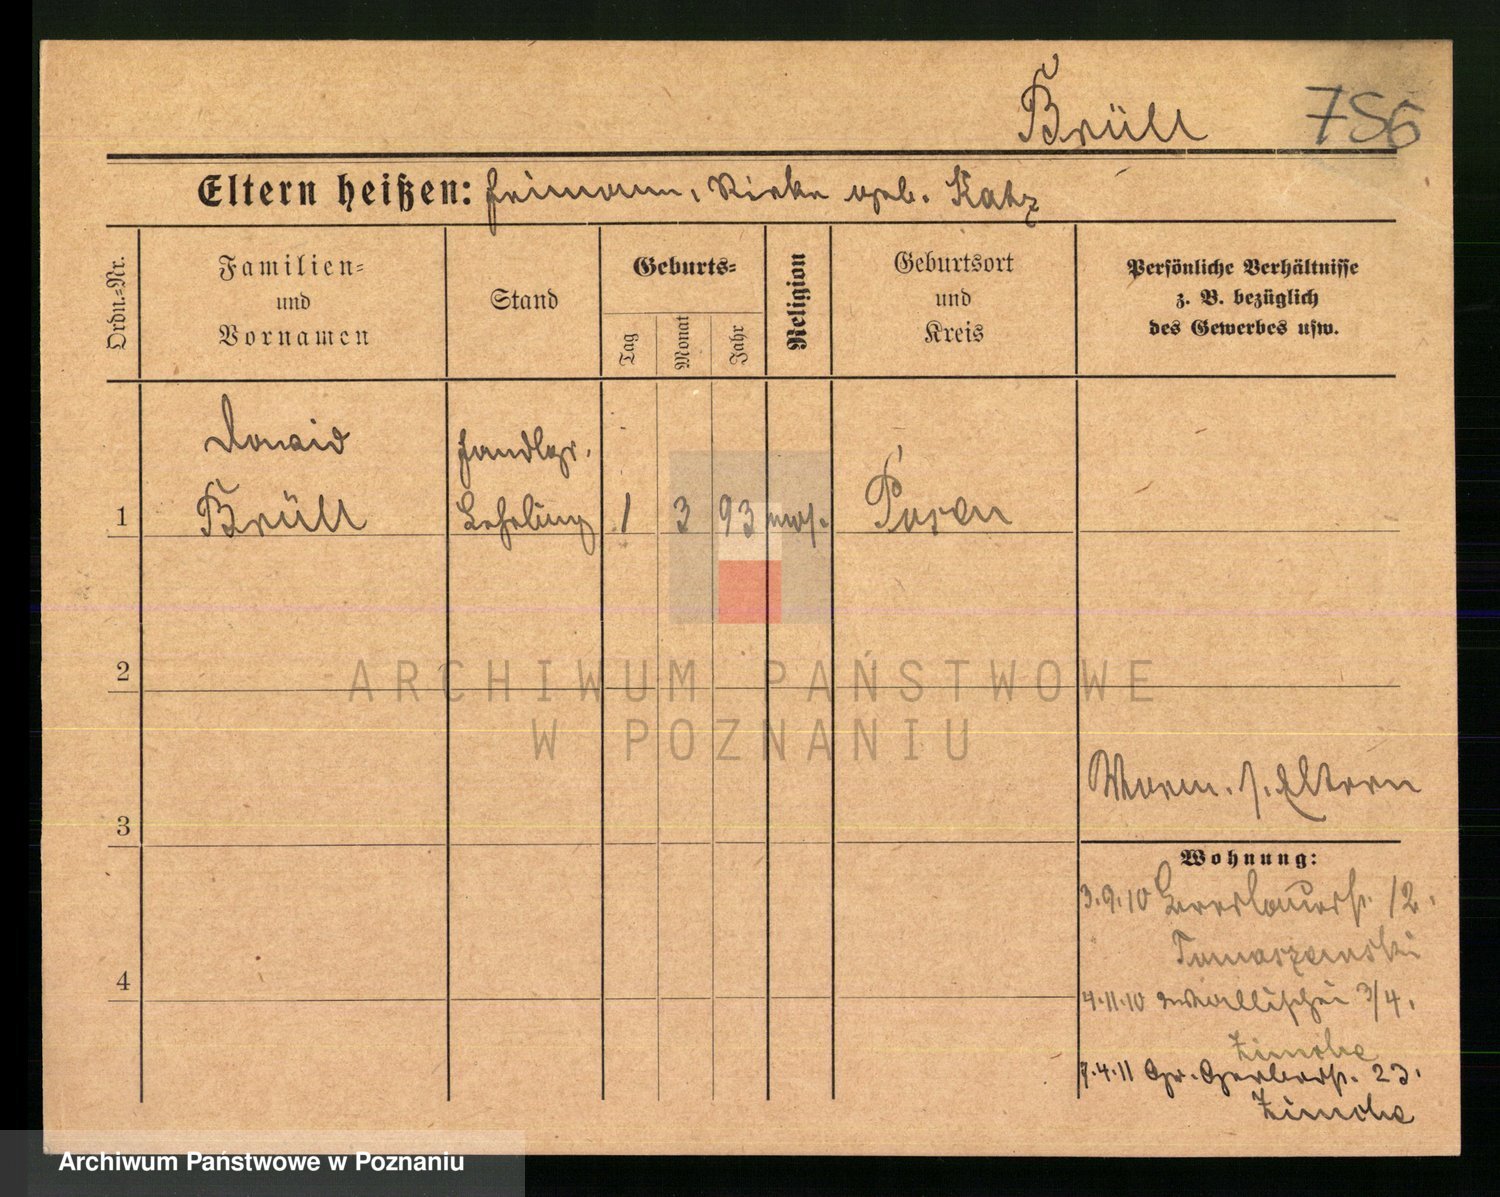 Brüll
756
Eltern heißen: Heimann, Rieke geb. Katz
Ordn.-Nr.
Familien-
und
Vornamen
Stand
Geburts-
Tag
Monat
Jahr
Religion
Geburtsort
und
Kreis
Persönliche Verhältnisse
z. B. bezüglich
des Gewerbes usw.
1
Brüll
Handlgs.
Lehrling
1 3 93 mos. Posen
2
3
4
Worm. s. Eltern
Wohnung:
3.9.10 12.
Tomaszewski
4.11.10 Wallischei 3/4.
7.4.11 Gr. Gerberstr. 23.
ARCHIWUM PAŃSTWOWE
W POZNANIU
Archiwum Państwowe w Poznaniu